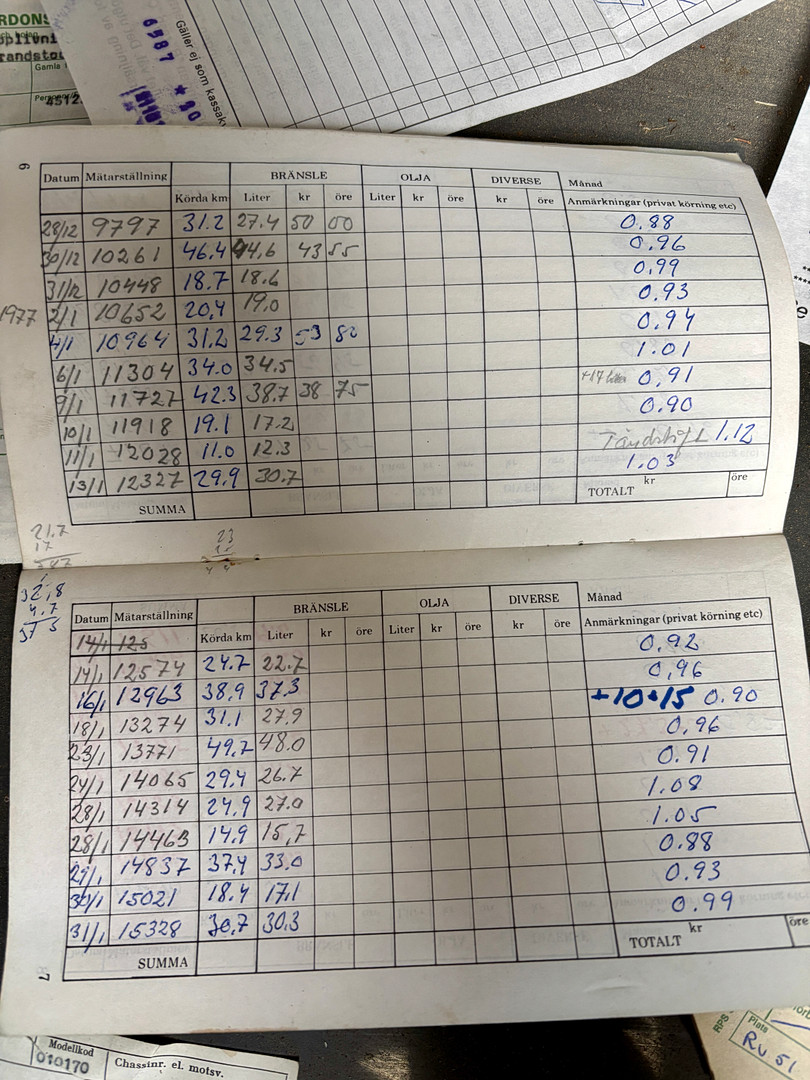 RDONS
Gamla
4512
6587 * 80
Gäller ej som kassak
6
Datum Mätarställning Körda km BRÄNSLE Liter kr öre OLJA Liter kr öre DIVERSE kr öre Månad
Anmärkningar (privat körning etc)
28/12 9797 31.2 27.4 50 00 0.88
30/12 10261 46.4 44.6 43 55 0.96
31/12 10448 18.7 18.6 0.99
1977 2/1 10652 20,4 19.0 0.93
4/1 10964 31.2 29.3 53 80 0.94
6/1 11304 34.0 34.5 1.01
9/1 11727 42.3 38.7 38 75 0,91
10/1 11918 19.1 17.2 0.90
11/1 12028 11.0 12.3 Tändstift 1.12
13/1 12327 29,9 30.7 1.03
SUMMA TOTALT kr öre
21.7
17
23
32,8
4.7
37 5
Datum Mätarställning Körda km BRÄNSLE Liter kr öre OLJA Liter kr öre DIVERSE kr öre Månad
Anmärkningar (privat körning etc)
14/1 125
14/1 12574 24.7 22.7 0,92
16/1 12963 38,9 37,3 0,96
18/1 13274 31.1 27,9 +10+15 0.90
23/1 13771 49,7 48.0 0.96
24/1 14065 29,4 26.7 0.91
28/1 14314 24,9 27.0 1.08
28/1 14463 14,9 15,7 1.05
29/1 14837 37,4 33.0 0.88
30/1 15021 18.4 17,1 0.93
31/1 15328 30,7 30.3 0.99
SUMMA TOTALT kr öre
7
Modellkod
010170
Chassinr. el. motsv.
RPS
Plats
RU 51